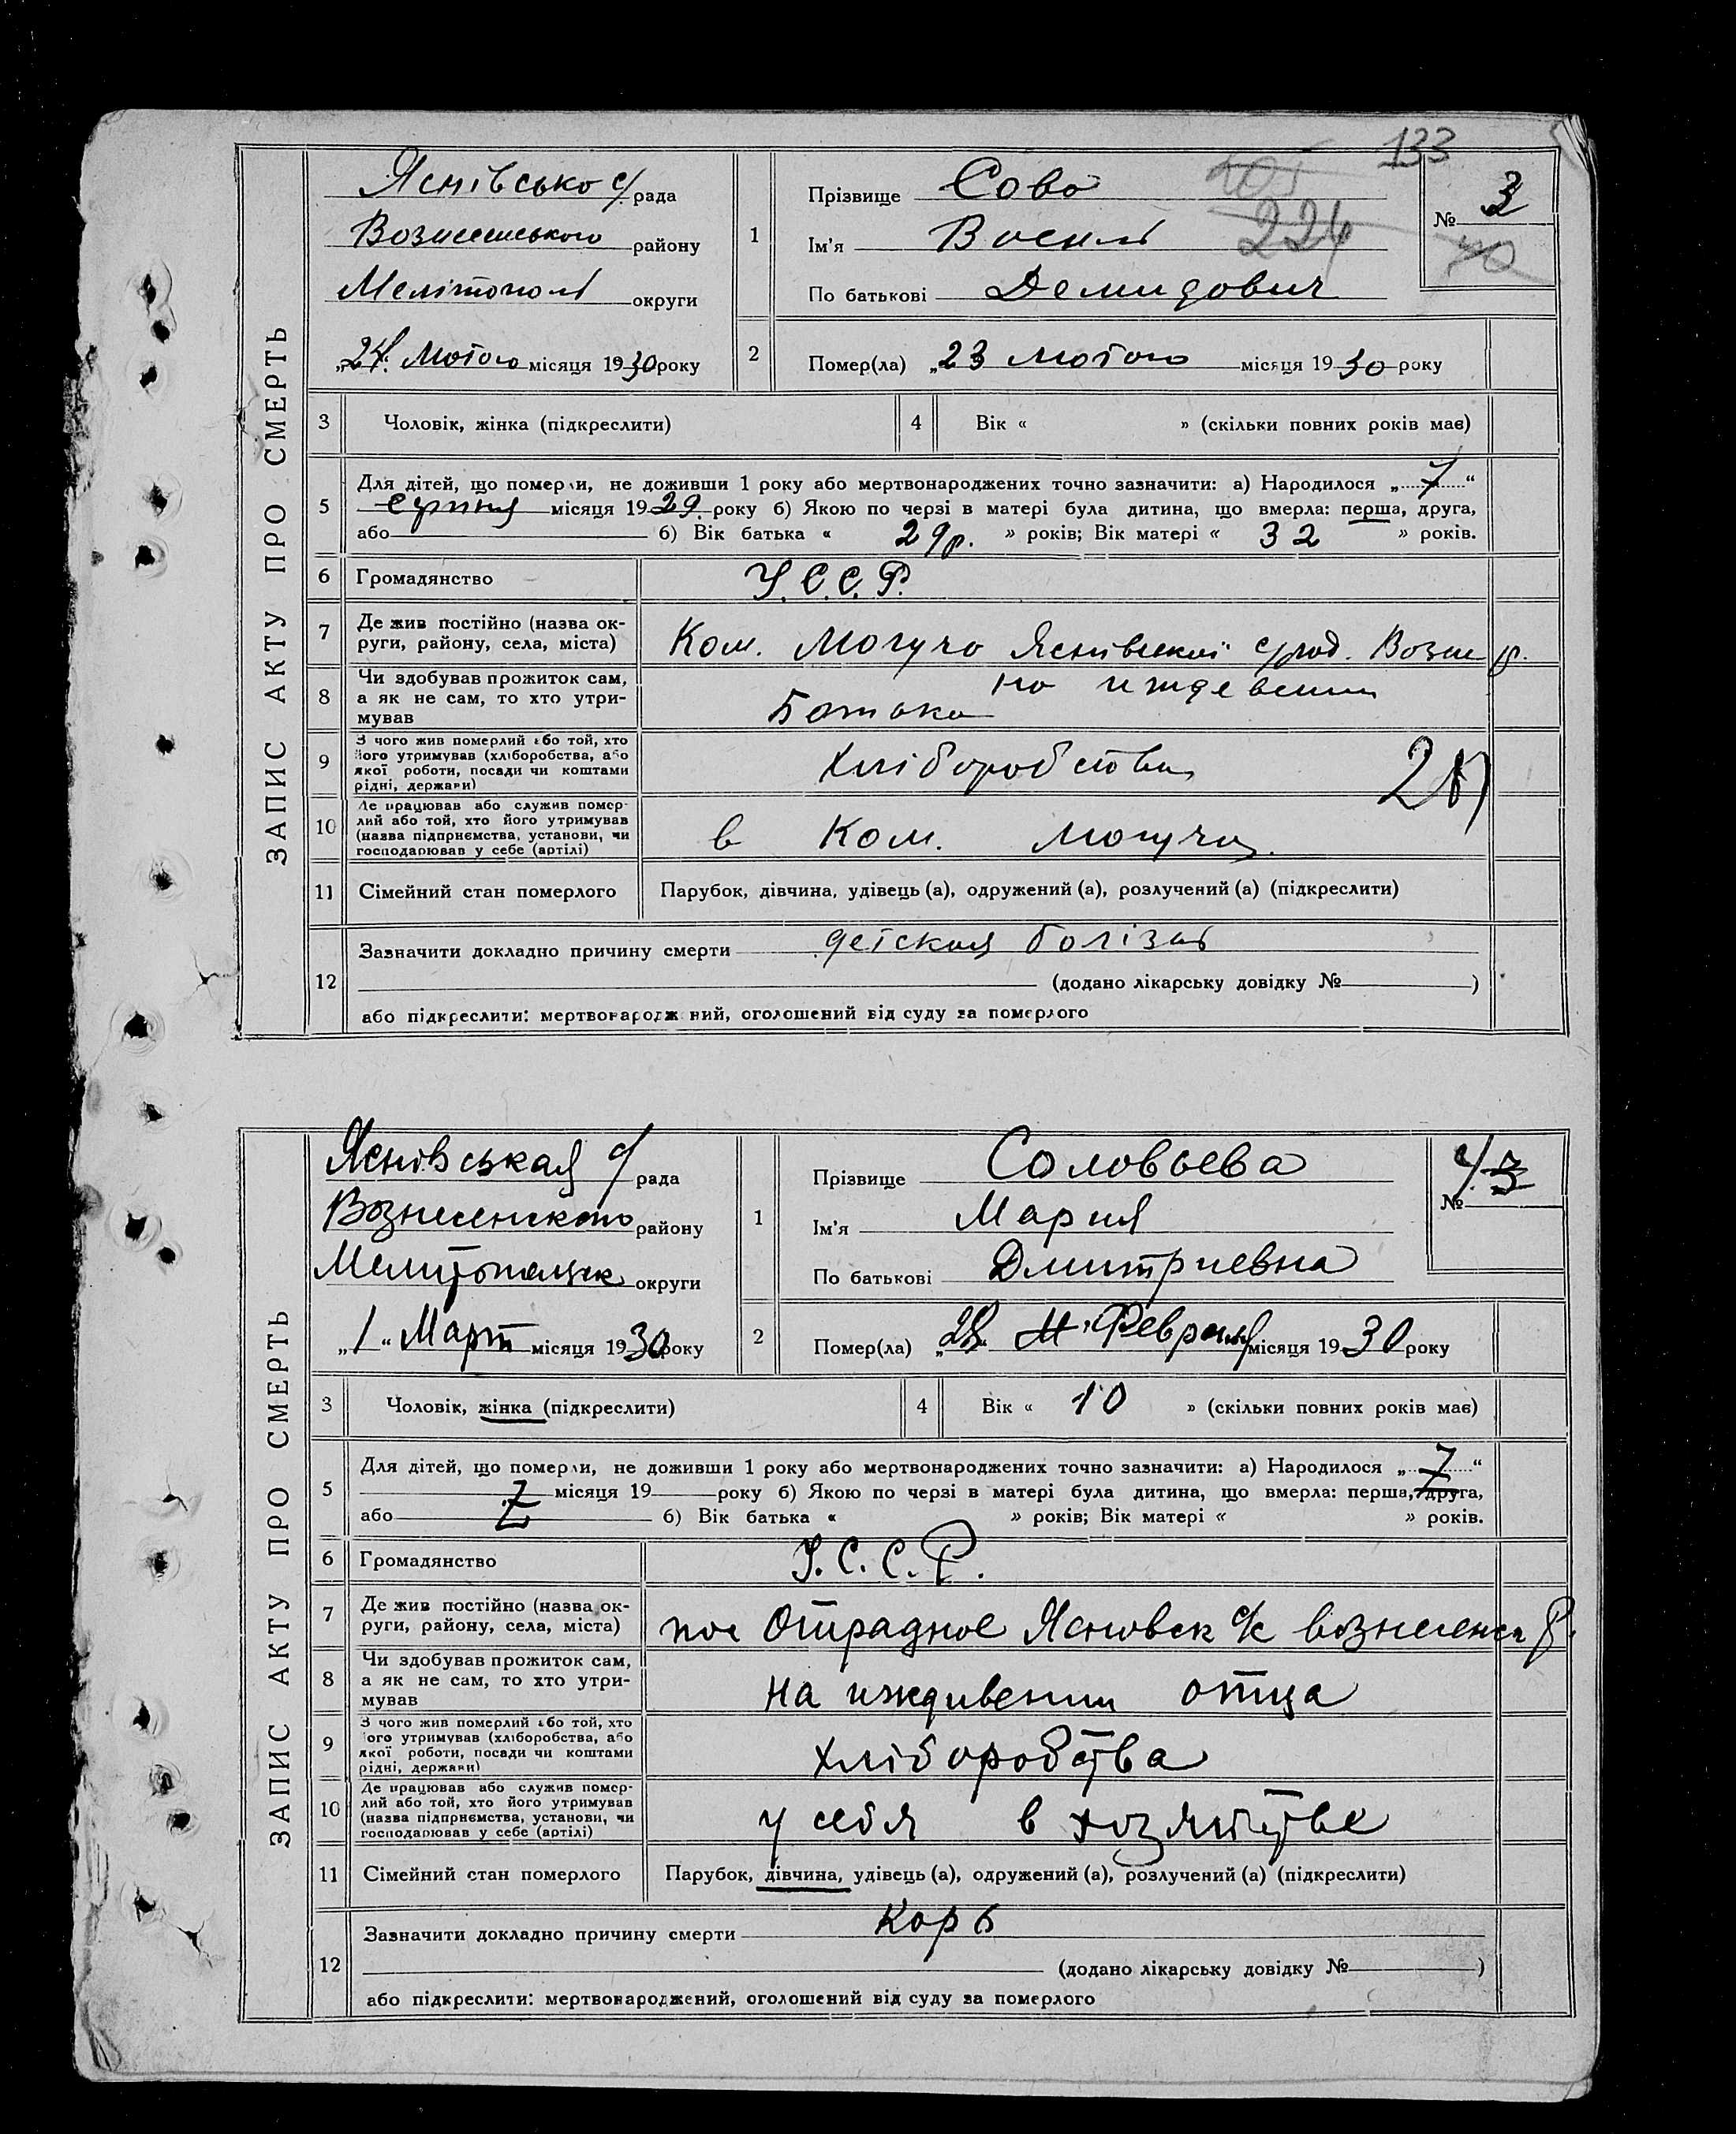 133
224
ЗАПИС АКТУ ПРО СМЕРТЬ
Яснівсько с/рада
Вознесенського району
Мелітополь округи
„24“ Лютого місяця 1930 року
1
Прізвище Сова
Ім'я Василь
По батькові Демидович
№ 3
40
2
Помер(ла) „23 лютого місяця 1930 року
3 Чоловік, жінка (підкреслити)
4 Вік « » (скільки повних років має)
5 Для дітей, що померли, не доживши 1 року або мертвонароджених точно зазначити: а) Народилося „7“
серпня місяця 1929 року б) Якою по черзі в матері була дитина, що вмерла: перша, друга,
або б) Вік батька « 29р. » років; Вік матері « 32 » років.
6 Громадянство У.С.С.Р.
7 Де жив постійно (назва ок-
руги, району, села, міста) Ком. Могучо Яснівської с/рад. Возне р.
8 Чи здобував прожиток сам,
а як не сам, то хто утри-
мував на иждевении
Батька
9 З чого жив померлий або той, хто
його утримував (хліборобства, або
якої роботи, посади чи коштами
рідні, держави) хліборобства
10 Де працював або служив помер-
лий або той, хто його утримував
(назва підприємства, установи, чи
господарював у себе (артілі) в Ком. Могучо
11 Сімейний стан померлого Парубок, дівчина, удівець (а), одружений (а), розлучений (а) (підкреслити)
12 Зазначити докладно причину смерти детская болізнь
(додано лікарську довідку № )
або підкреслити: мертвонароджений, оголошений від суду за померлого
ЗАПИС АКТУ ПРО СМЕРТЬ
Яснівськая с/рада
Вознесенского району
Мелитопольск округи
„1“ Март місяця 1930 року
1
Прізвище Соловьева
Ім'я Мария
По батькові Дмитриевна
№ 4
3
2
Помер(ла) „28“ Февраля місяця 1930 року
3 Чоловік, жінка (підкреслити)
4 Вік « 10 » (скільки повних років має)
5 Для дітей, що померли, не доживши 1 року або мертвонароджених точно зазначити: а) Народилося „Z“
Z місяця 19 року б) Якою по черзі в матері була дитина, що вмерла: перша, друга,
або б) Вік батька « » років; Вік матері « » років.
6 Громадянство У.С.С.Р.
7 Де жив постійно (назва ок-
руги, району, села, міста) пос Отрадное Ясновск с/с вознесенск р.
8 Чи здобував прожиток сам,
а як не сам, то хто утри-
мував на иждивении отца
9 З чого жив померлий або той, хто
його утримував (хліборобства, або
якої роботи, посади чи коштами
рідні, держави) хліборобства
10 Де працював або служив помер-
лий або той, хто його утримував
(назва підприємства, установи, чи
господарював у себе (артілі) у себя в хозяйстве
11 Сімейний стан померлого Парубок, дівчина, удівець (а), одружений (а), розлучений (а) (підкреслити)
12 Зазначити докладно причину смерти Корь
(додано лікарську довідку № )
або підкреслити: мертвонароджений, оголошений від суду за померлого